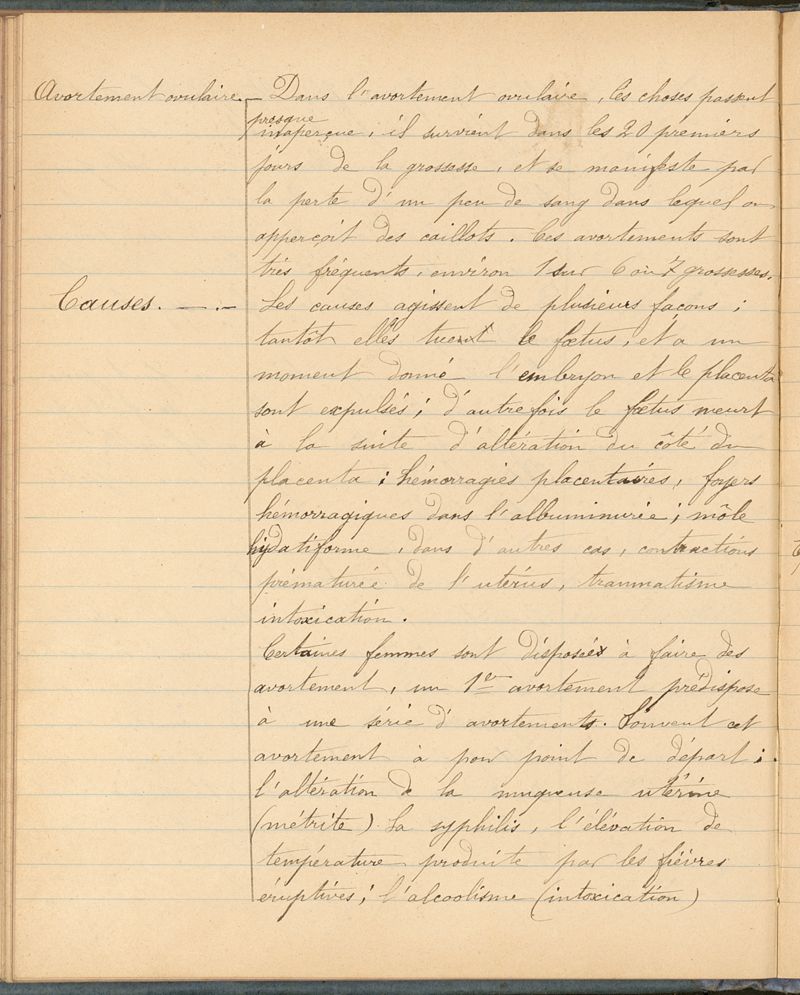 Avortement ovulaire. — Dans l'avortement ovulaire, les choses passent
presque
inaperçue, il survient dans les 20 premiers
jours de la grossesse, et se manifeste par
la perte d'un peu de sang dans lequel on
apperçoit des caillots. Ces avortements sont
très fréquents, environ 1 sur 6 ou 7 grossesses.
Causes. — . — Les causes agissent de plusieurs façons ;
tantôt elles tuent le fœtus, et a un
moment donné l'embryon et le placenta
sont expulsés ; d'autre fois le fœtus meurt
à la suite d'altération du côté du
placenta : hémorragies placentaires, foyers
hémorragiques dans l'albuminurie ; môle
hydatiforme, dans d'autres cas, contractions
prématurée de l'utérus, traumatisme
intoxication.
Certaines femmes sont disposées à faire des
avortement, un 1er avortement prédispose
à une série d'avortements. Souvent cet
avortement à pour point de départ :
l'altération de la muqueuse utérine
(métrite) La syphilis, l'élévation de
température produite par les fièvres
éruptives ; l'alcoolisme (intoxication)